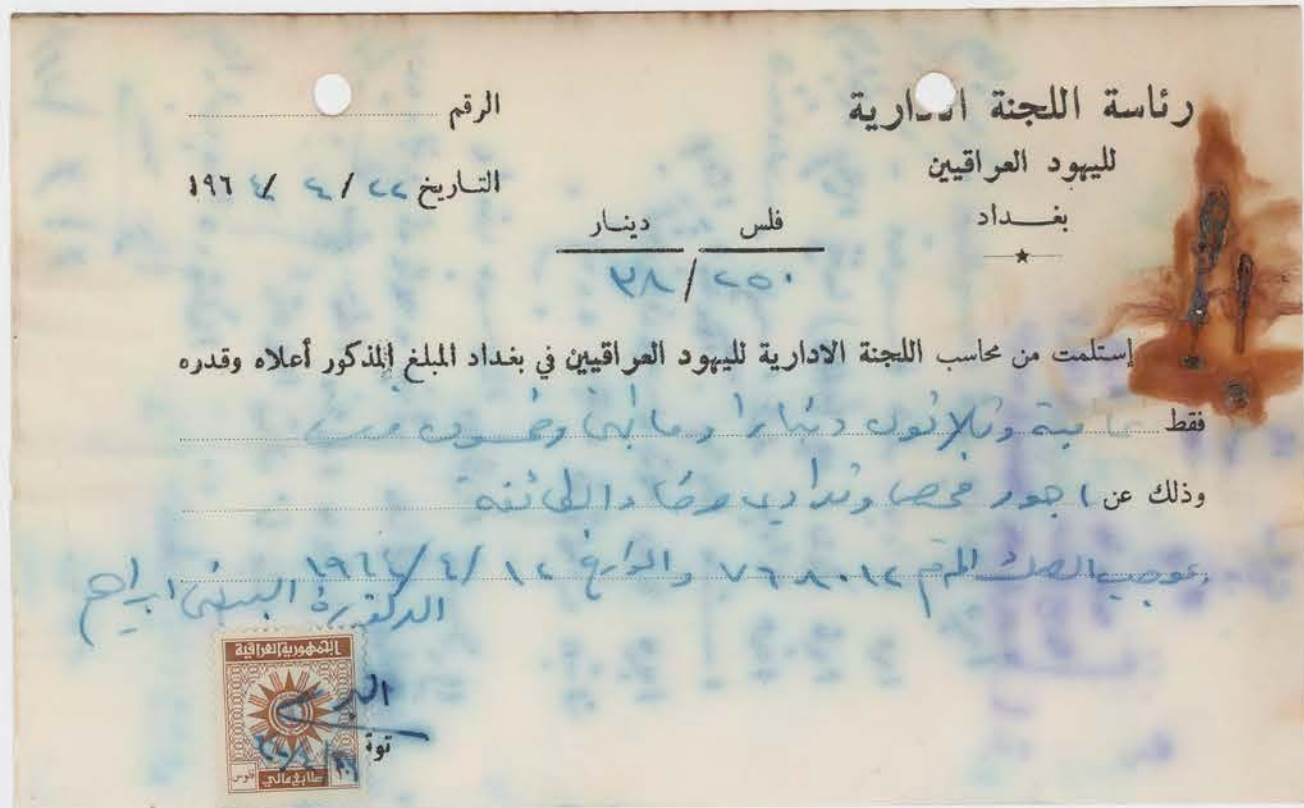 رئاسة اللجنة الادارية
لليهود العراقيين
بغداد
الرقم
التاريخ ٢٢ / ٤ / ١٩٦٤
فلس دينار
٣٨/٢٥٠
إستلمت من محاسب اللجنة الادارية لليهود العراقيين في بغداد المبلغ المذكور أعلاه وقدره
فقط ثمانية وثلاثون دينارا ومائتي وخمسون فلس
وذلك عن اجور فحص وتداوي مرضاء الطائفة
بموجب الصك المرقم والمؤرخ ١٩٦٤/٤/١٢
الدكتورة ابراهيم
الجمهورية العراقية
طابع مالي
فلوس